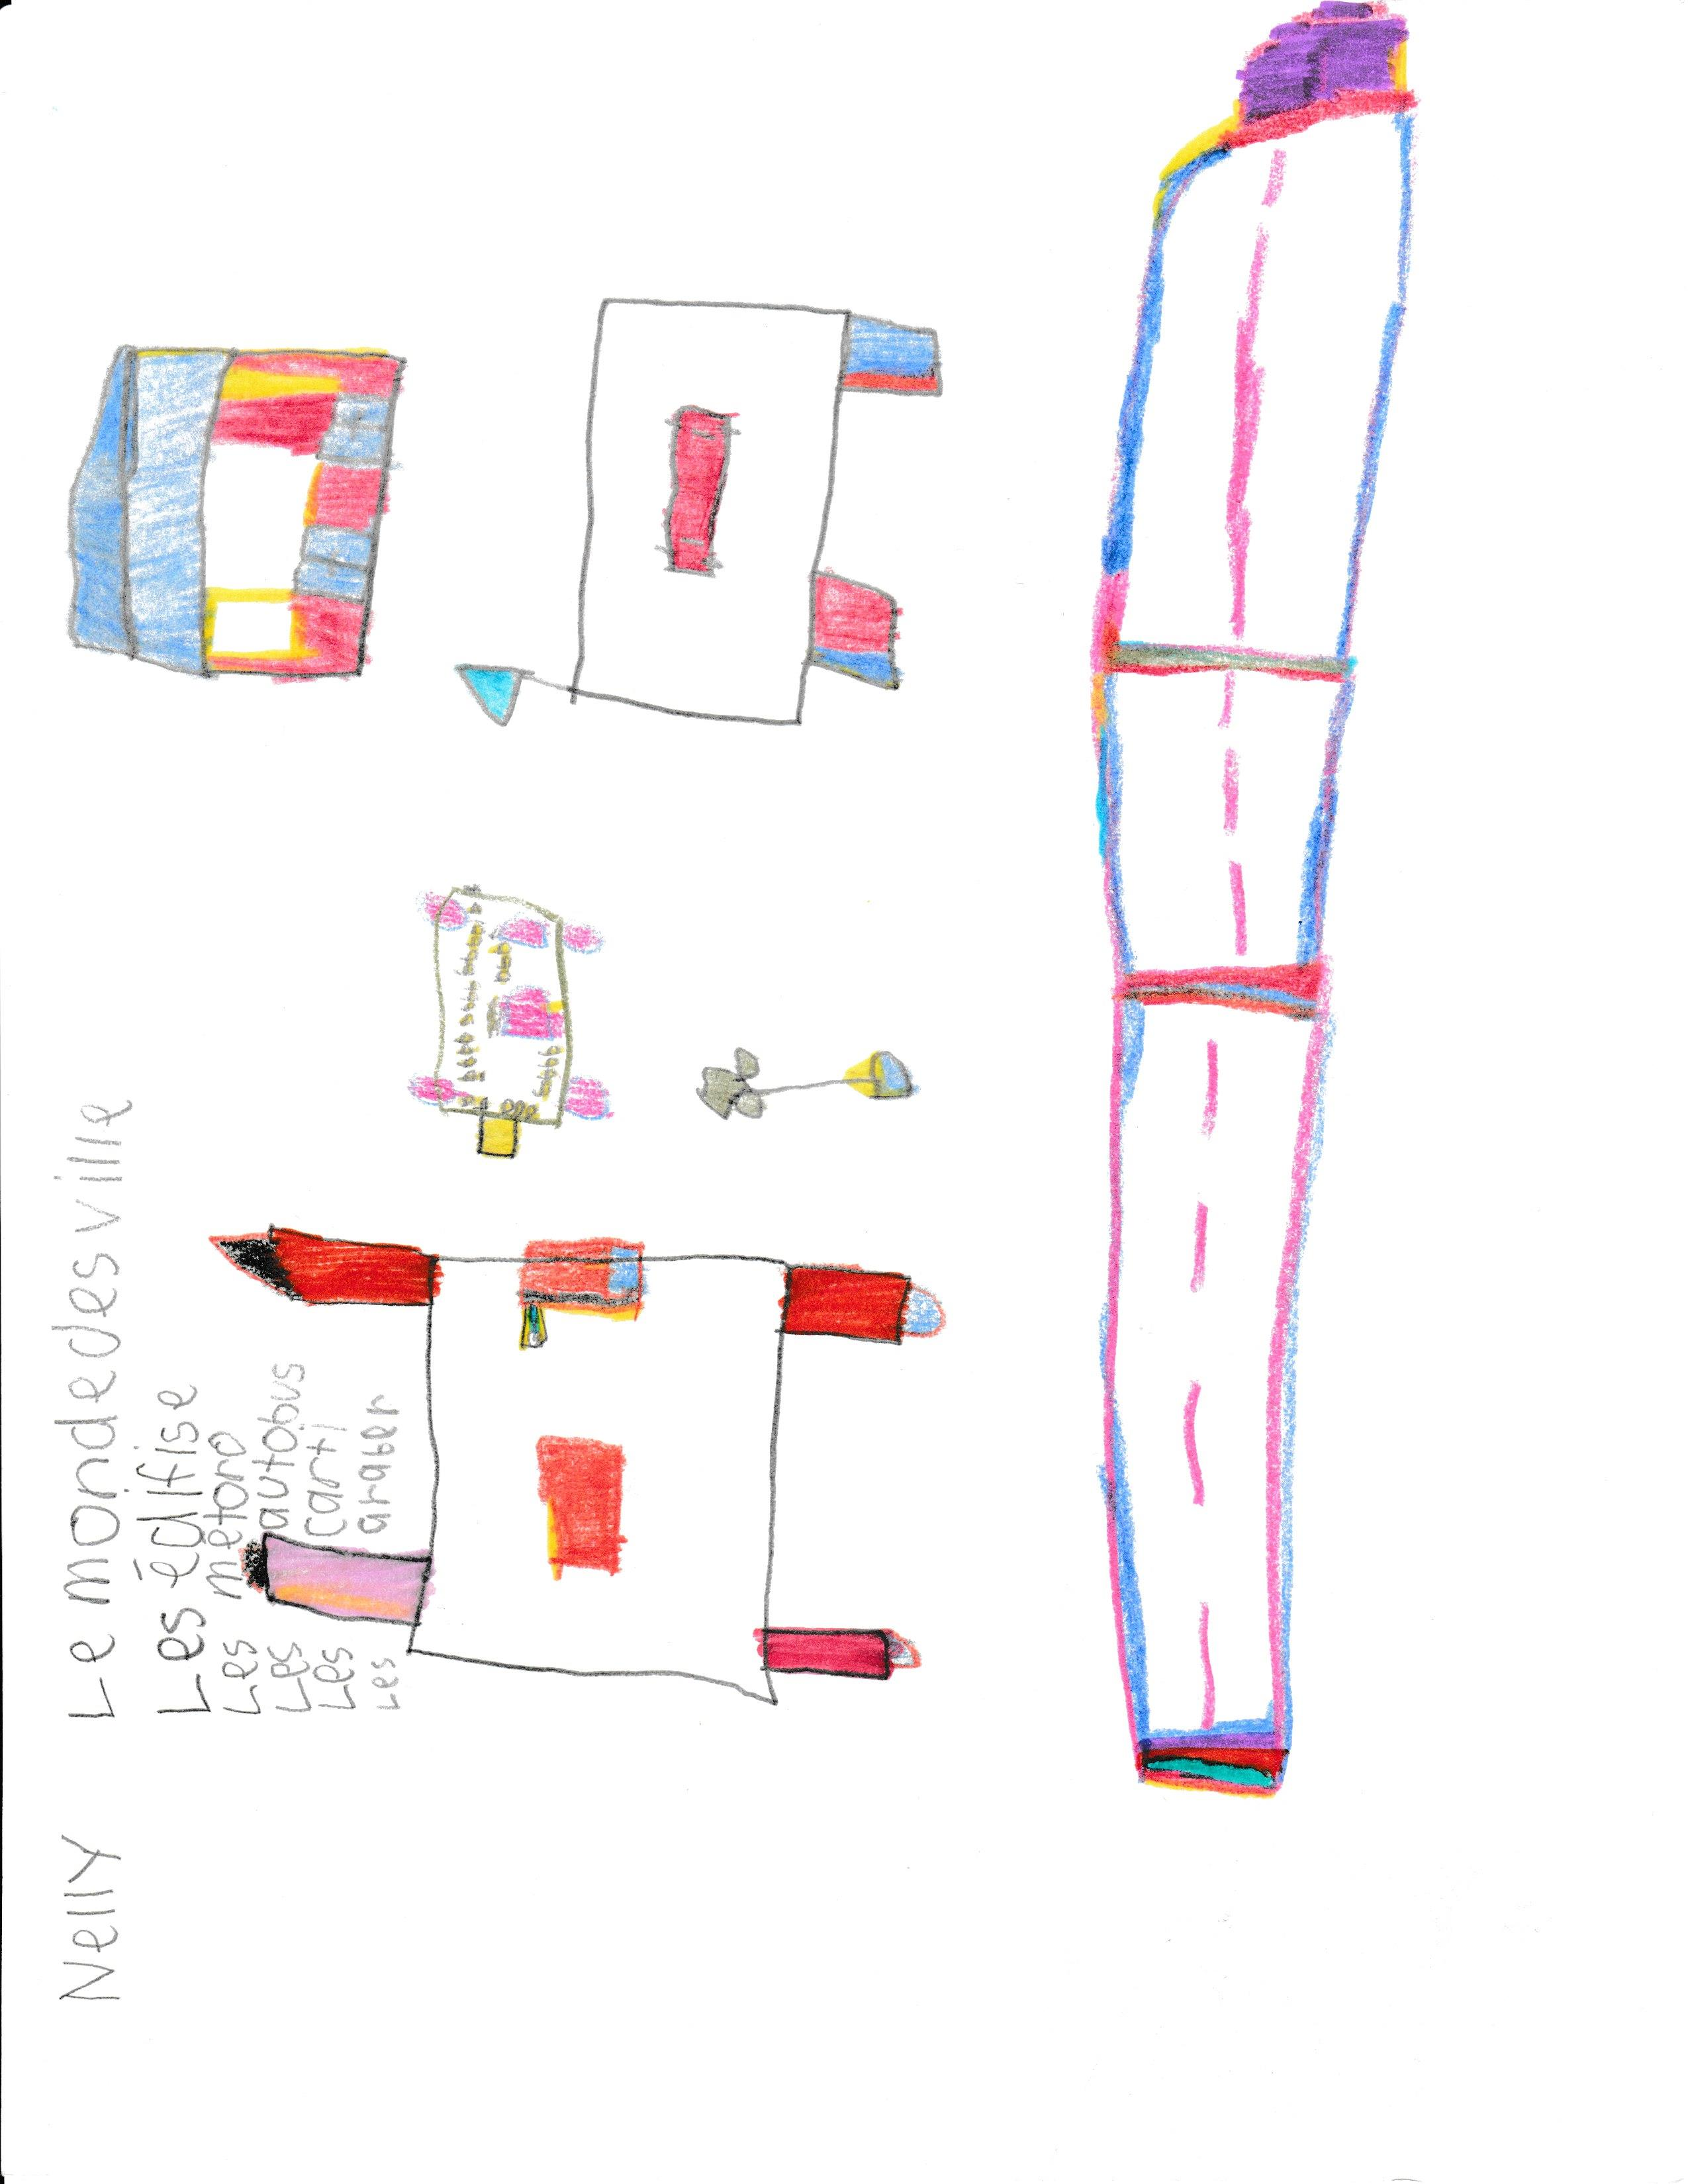 Nelly Le monde des ville
Les édifise
Les métoro
Les autobus
Les carti
Les araber